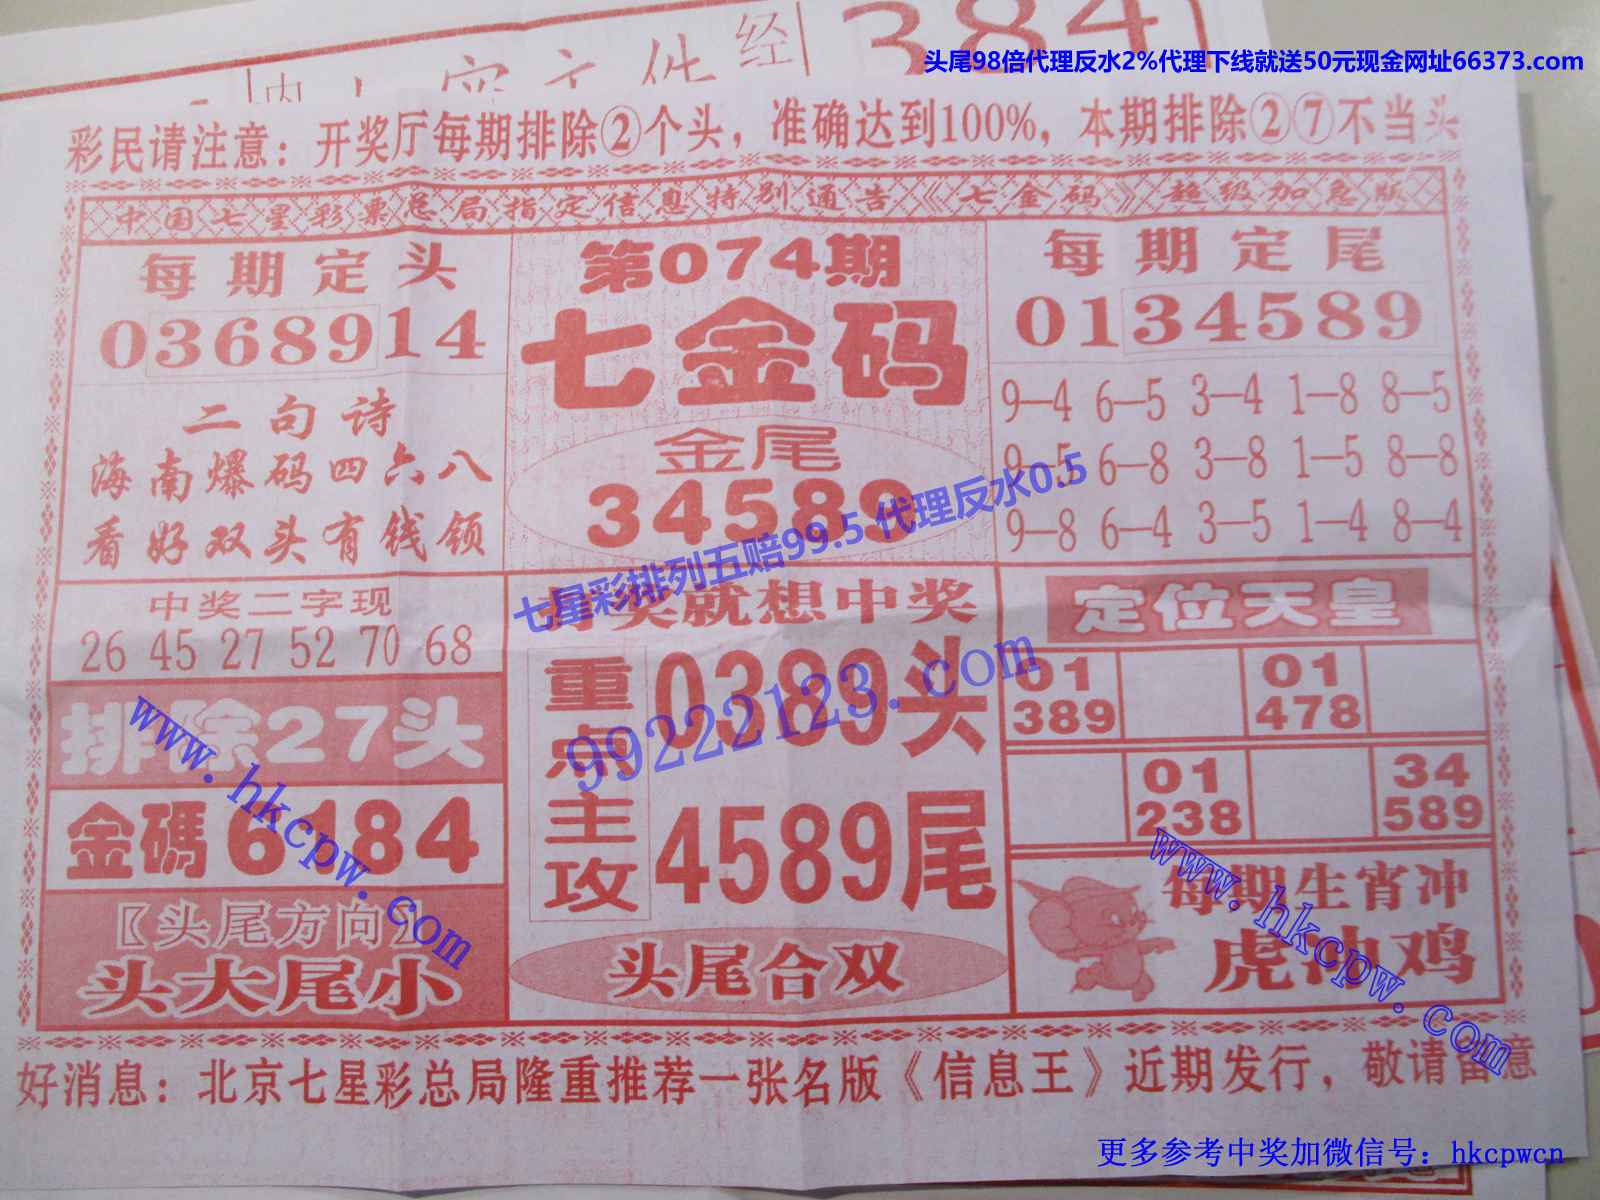 384
头尾98倍代理反水2%代理下线就送50元现金网址66373.com
彩民请注意：开奖厅每期排除②个头，准确达到100%，本期排除②⑦不当头
中国七星彩票总局指定信息特别通告《七金码》超级加急版
每期定头
0368914
二句诗
海南爆码四六八
看好双头有钱领
第074期
七金码
金尾
34589
每期定尾
0134589
9—4 6—5 3—4 1—8 8—5
9—5 6—8 3—8 1—5 8—8
9—8 6—4 3—5 1—4 8—4
七星彩排列五赔99.5代理反水0.5
中奖二字现
26 45 27 52 70 68
排除27头
金碼6184
〖头尾方向〗
头大尾小
就想中奖
重点主攻
0389头
4589尾
头尾合双
99222123.com
定位天皇
01
389
01
478
01
238
34
589
每期生肖冲
虎冲鸡
www.hkcpw.com
www.hkcpw.com
好消息：北京七星彩总局隆重推荐一张名版《信息王》近期发行，敬请留意
更多参考中奖加微信号：hkcpwcn